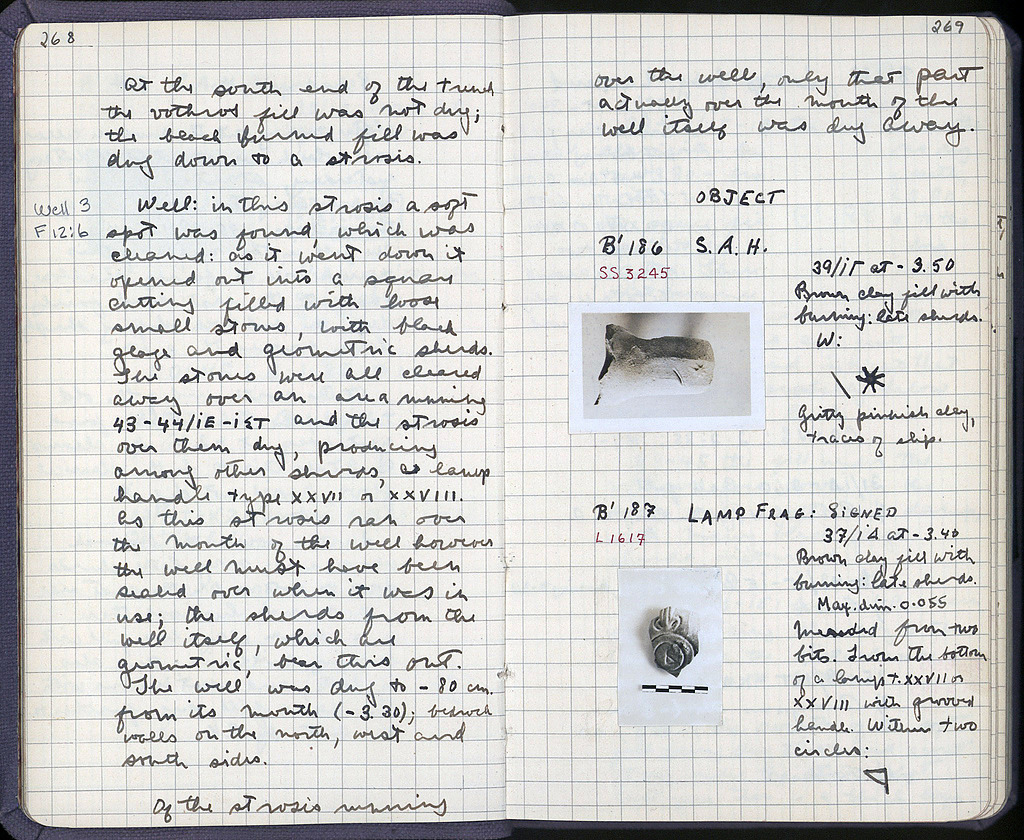 268
At the south end of the trench
the bothros fill was not dug;
the black burned fill was
dug down to a strosis.
Well 3
F 12:6
Well: in this strosis a soft
spot was found, which was
cleaned: as it went down it
opened out into a square
cutting filled with loose
small stones, with black
glaze and geometric sherds.
The stones were all cleared
away over an area running
43-44/ΙΕ-ΙΣΤ and the strosis
over them dug, producing
among other sherds, a lamp
handle type XXVII or XXVIII.
As this strosis ran over
the mouth of the well however
the well must have been
sealed over when it was in
use; the sherds from the
well itself, which are
geometric, bear this out.
The well was dug to -80 cm.
from its mouth (-3.30); bedrock
walls on the north, west and
south sides.
Of the strosis running
269
over the well, only that part
actually over the mouth of the
well itself was dug away.
OBJECT
B' 186 S.A.H.
SS 3245
39/ΙΓ at -3.50
Brown clay fill with
burning: late sherds.
W:
Gritty pinkish clay,
traces of slip.
B' 187 LAMP FRAG: SIGNED
L 1617
37/ΙΔ at -3.40
Brown clay fill with
burning: late sherds.
Max. dim. 0.055
Mended from two
bits. From the bottom
of a lamp t. XXVII or
XXVIII with grooved
handle. Within two
circles: